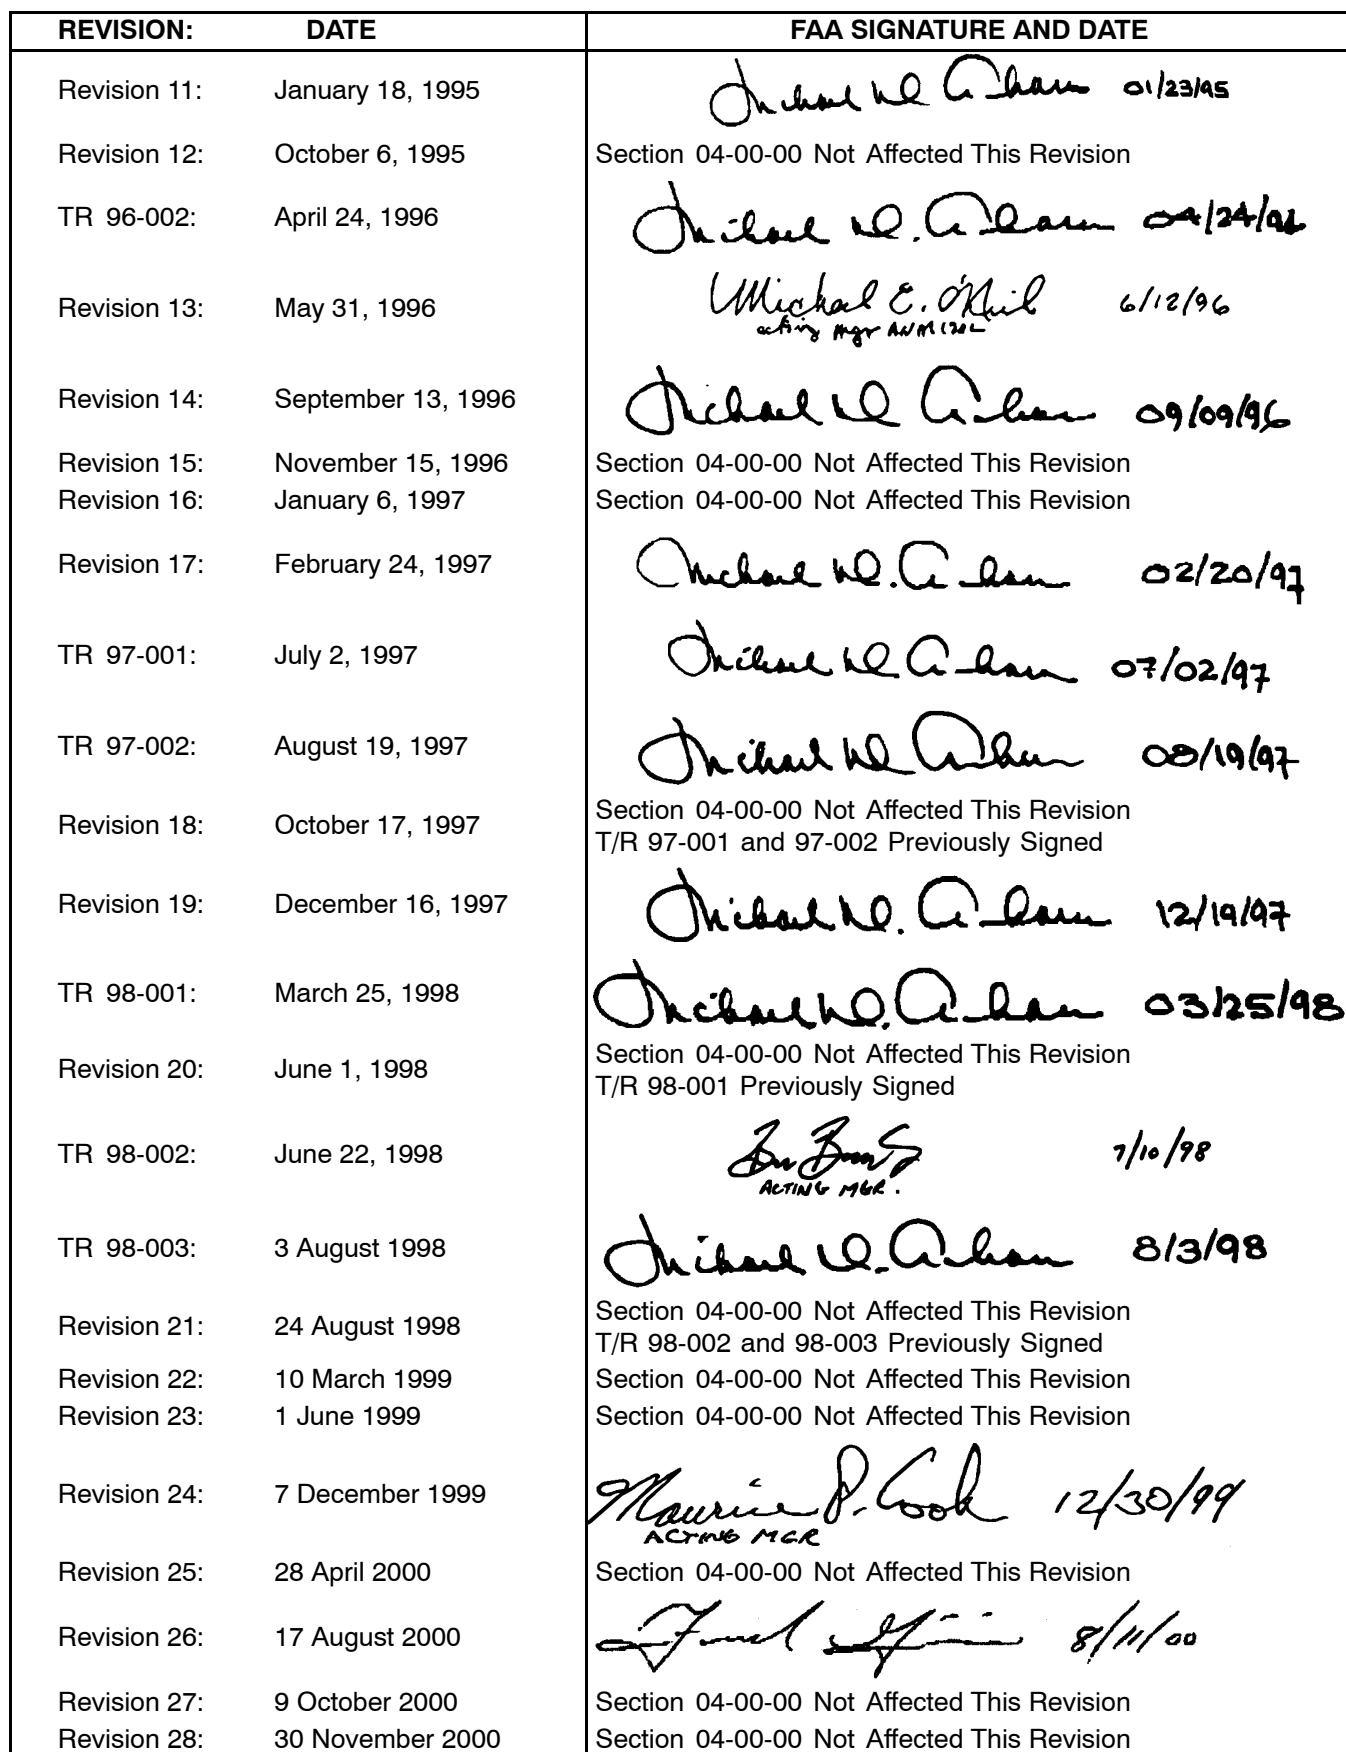 REVISION: DATE FAA SIGNATURE AND DATE
Revision 11: January 18, 1995 Michael 01/23/95
Revision 12: October 6, 1995 Section 04-00-00 Not Affected This Revision
TR 96-002: April 24, 1996 Michael 04/24/96
Revision 13: May 31, 1996 Michael E. O'Neil 6/12/96
acting Mgr ANM 120L
Revision 14: September 13, 1996 Michael 09/09/96
Revision 15: November 15, 1996 Section 04-00-00 Not Affected This Revision
Revision 16: January 6, 1997 Section 04-00-00 Not Affected This Revision
Revision 17: February 24, 1997 Michael 02/20/97
TR 97-001: July 2, 1997 Michael 07/02/97
TR 97-002: August 19, 1997 Michael 08/19/97
Revision 18: October 17, 1997 Section 04-00-00 Not Affected This Revision
T/R 97-001 and 97-002 Previously Signed
Revision 19: December 16, 1997 Michael 12/19/97
TR 98-001: March 25, 1998 Michael 03/25/98
Revision 20: June 1, 1998 Section 04-00-00 Not Affected This Revision
T/R 98-001 Previously Signed
TR 98-002: June 22, 1998 7/10/98
ACTING MGR.
TR 98-003: 3 August 1998 Michael 8/3/98
Revision 21: 24 August 1998 Section 04-00-00 Not Affected This Revision
T/R 98-002 and 98-003 Previously Signed
Revision 22: 10 March 1999 Section 04-00-00 Not Affected This Revision
Revision 23: 1 June 1999 Section 04-00-00 Not Affected This Revision
Revision 24: 7 December 1999 Maurice P. Cook 12/30/99
ACTING MGR
Revision 25: 28 April 2000 Section 04-00-00 Not Affected This Revision
Revision 26: 17 August 2000 8/11/00
Revision 27: 9 October 2000 Section 04-00-00 Not Affected This Revision
Revision 28: 30 November 2000 Section 04-00-00 Not Affected This Revision